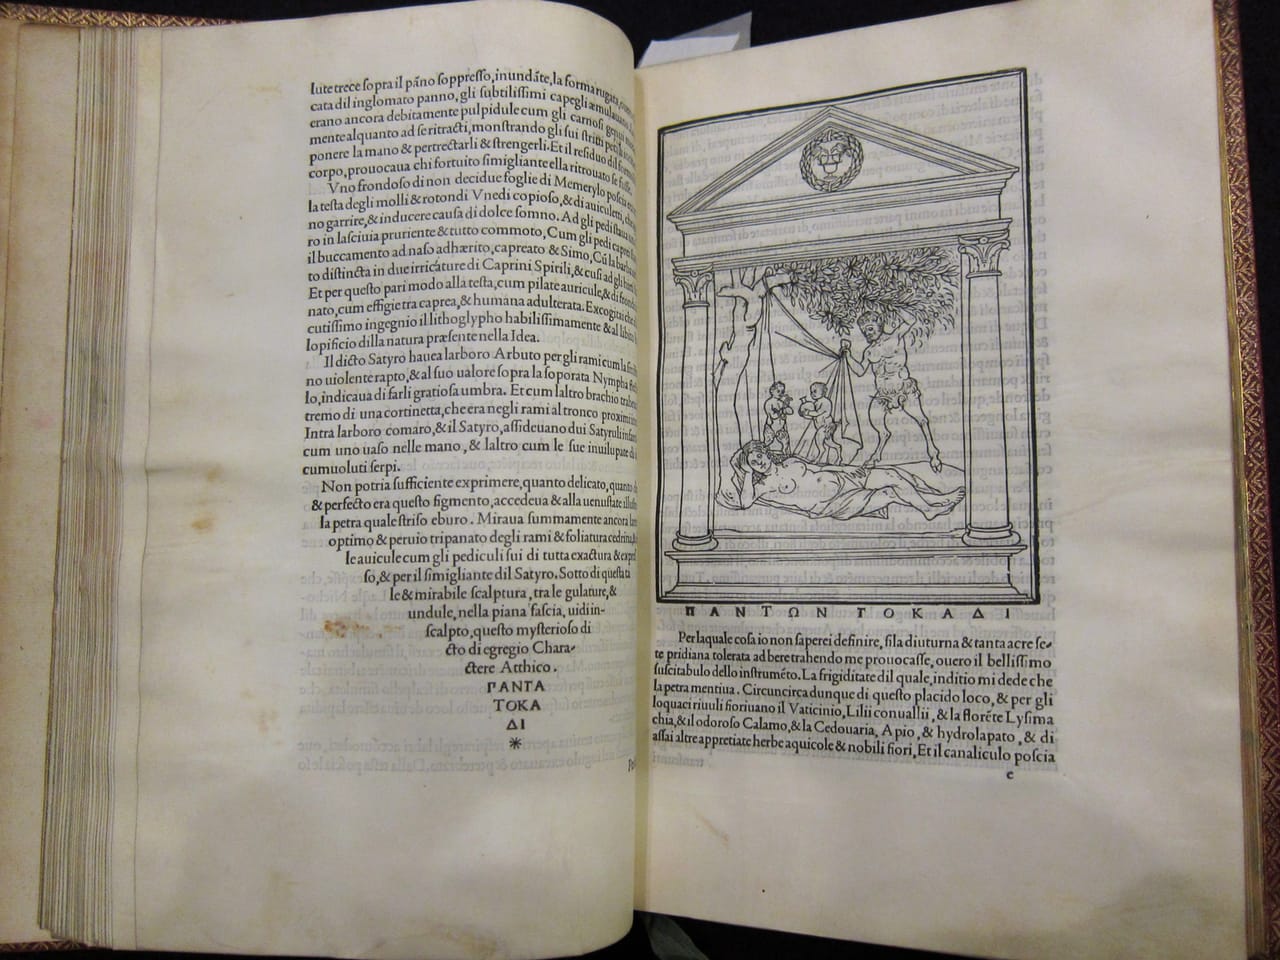 lute trece sopra il páno soppresso, inundáte, la forma rugata,
cata dil inglomato panno, gli subtilissimi capegli æmulauano
erano ancora debitamente pulpidule cum gli carnosi
mente alquanto ad se ritracti, monstrando gli sui stricti
ponere la mano & pertrectarli & strengerli. Et il residuo dil
corpo, prouocaua chi fortuito simigliante ella ritrouato se fusse.
Vno frondoso di non decidue foglie di Memerylo poscia
la testa degli molli & rotondi Vnedi copioso, & di auiculetti, che
no garrire, & inducere causa di dolce somno. Ad gli pedi staua
ro in lasciuia pruriente & tutto commoto, Cum gli pedi
il buccamento ad naso adhærito, capreato & Simo, Cũ la barba
to distincta in due irricáture di Caprini Spirili, & cusi ad gli
Et per questo pari modo alla testa, cum pilate auricule, & di
nato, cum effigie tra caprea, & humana adulterata. Excogitai che
cutissimo ingegnio il lithoglypho habilissimamente & al libito
lopificio dilla natura præsente nella Idea.
Il dicto Satyro hauea larboro Arbuto per gli rami cum la
no uiolente rapto, & al suo ualore sopra la soporata Nympha
lo, indicaua di farli gratiosa umbra. Et cum laltro brachio
tremo di una cortinetta, che era negli rami al tronco proximi
Intra larboro comaro, & il Satyro, assideuano dui Satyruli
cum uno uaso nelle mano, & laltro cum le sue inuilupate di
cumuoluti serpi.
Non potria sufficiente exprimere, quanto delicato, quanto
& perfecto era questo figmento, accedeua & alla uenustate
la petra quale striso eburo. Miraua summamente ancora
optimo & peruio tripanato degli rami & foliatura cedrina,
le auicule cum gli pediculi sui di tutta exactura &
so, & per il simigliante dil Satyro. Sotto di questa
le & mirabile scalptura, tra le gulature, &
undule, nella piana fascia, uidi in-
scalpto, questo mysterioso di
cto di egregio Chara-
ctere Atthico.
ΠΑΝΤΑ
ΤΟΚΑ
ΔΙ
*
ΠΑΝΤΩΝ ΤΟΚΑΔΙ
Per laquale cosa io non saperei definire, si la diuturna & tanta acre se-
te pridiana tolerata ad bere trahendo me prouocasse, ouero il bellissimo
suscitabulo dello instruméto. La frigiditate dil quale, inditio mi dede che
la petra mentiua. Circuncirca dunque di questo placido loco, & per gli
loquaci riuuli fioriuano il Vaticinio, Lilii conuallii, & la floréte Lysima
chia, & il odoroso Calamo, & la Cedouaria, Apio, & hydrolapato, & di
assai altre appretiate herbe aquicole & nobili fiori, Et il canaliculo poscia
e